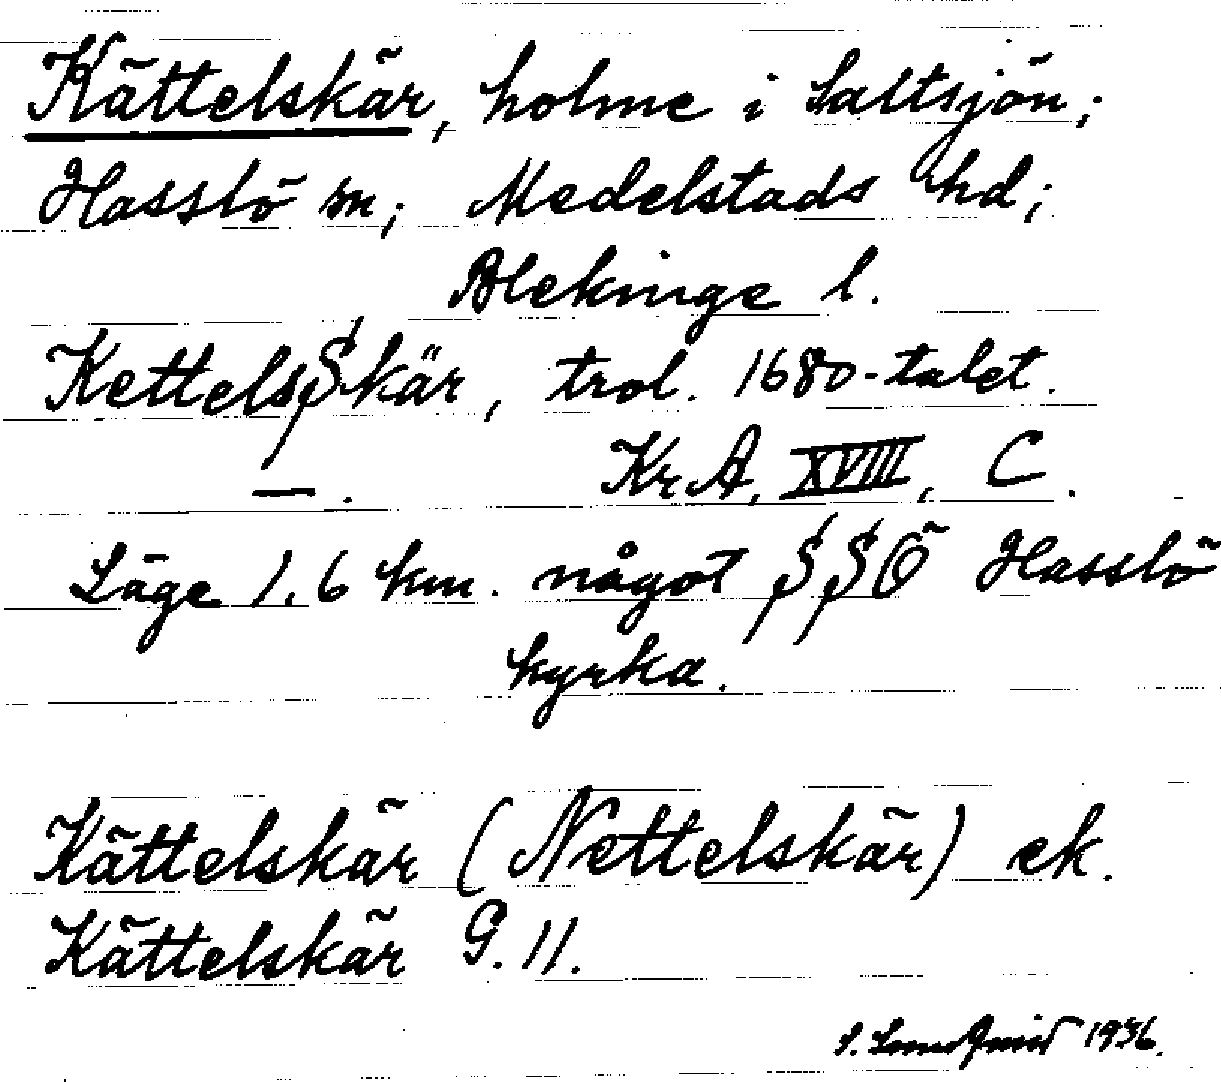 Kättelskär, holme i Saltsjön;
Hasslö sn; Medelstads hd;
Blekinge l.
Kettelsskär, trol. 1680-talet.
—. Kr A, XVIII, C.
Läge 1.6 km. något SSÖ Hasslö
kyrka.
Kättelskär (Nettelskär) ek.
Kättelskär G. 11.
S. Lundquist 1936.